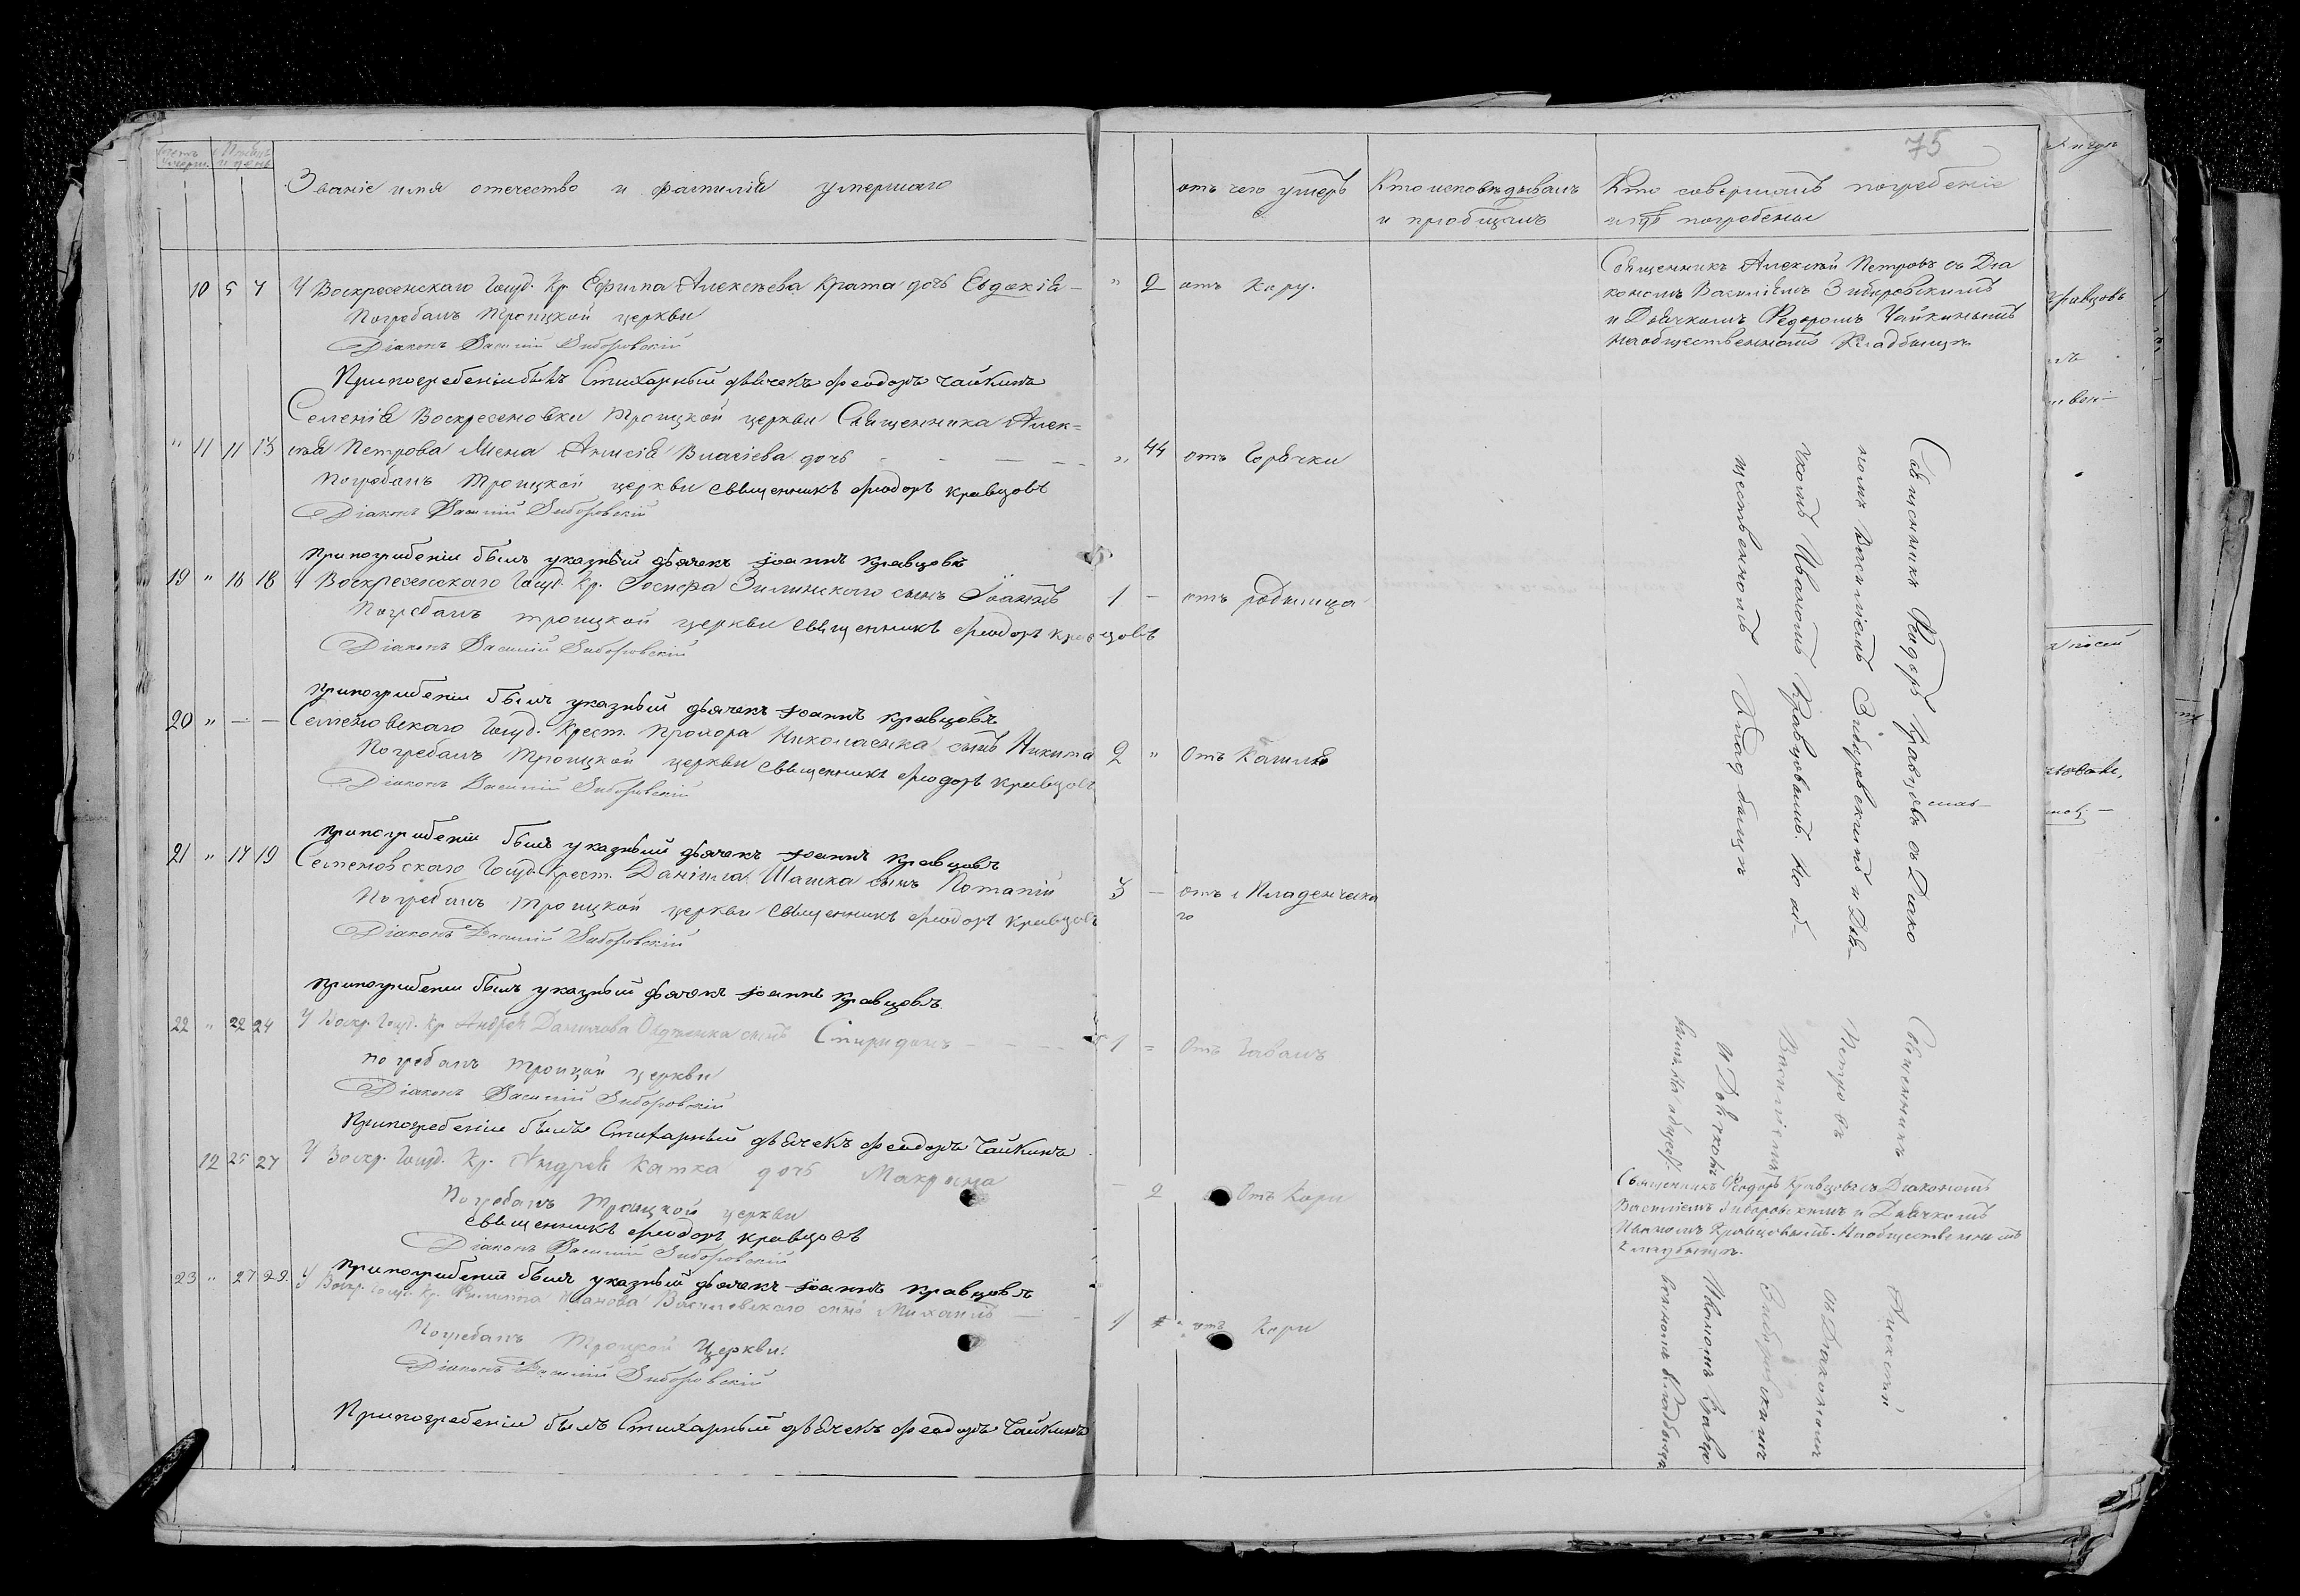 75
Званіе имя отечество и фамилія умершаго
отъ чего умеръ
Кто исповѣдывалъ
и пріобщалъ
Кто совершалъ погребеніе
и гдѣ погребены
10 5 7 У Воскресенскаго Госуд. Кр. Ефима Алексѣева Крата дочь Евдокія — " 2 отъ Кору.
Погребалъ Троицкой церкви
Діаконъ Василій Зиборовскій
При погребеніи былъ Стихарный дьячекъ Феодоръ Чайкинъ
Священникъ Алексѣй Петровъ съ Діа
кономъ Василіемъ Зиборовскимъ
и Дьячкомъ Федоромъ Чайкинымъ
на общественномъ Кладбищѣ
Селенія Воскресеновки Троицкой церкви Священника Алек=
" 11 11 13 сѣя Петрова Жена Анисія Власіева дочь " 44 отъ Горячки
Погребалъ Троицкой церкви священникъ Феодоръ Кравцовъ
Діаконъ Василій Зиборовскій
При погребеніи былъ указный дьячекъ Іоаннъ Кравцовъ
19 " 16 18 У Воскресенскаго Госуд. Кр. Іосифа Зилинскаго сынъ Іоаннъ 1 — отъ родимца
Погребалъ Троицкой церкви священникъ Феодоръ Кравцовъ
Діаконъ Василій Зиборовскій
При погребеніи былъ указный дьячекъ Іоаннъ Кравцовъ
20 " — — Семеновскаго Госуд. Крест. Прохора Николаенка сынъ Никита 2 " Отъ Кашля
Погребалъ Троицкой церкви священникъ Феодоръ Кравцовъ
Діаконъ Василій Зиборовскій
При погребеніи былъ указный дьячекъ Іоаннъ Кравцовъ
21 " 17 19 Семеновскаго Госуд. Крест. Даніила Шашка сынъ Потапій 3 — отъ Младенческа
го
Погребалъ Троицкой церкви священникъ Феодоръ Кравцовъ
Діаконъ Василій Зиборовскій
При погребеніи былъ указный дьячекъ Іоаннъ Кравцовъ
Священникъ Феодоръ Кравцовъ съ Діако
номъ Василіемъ Зиборовскимъ и Дья-
чкомъ Иваномъ Кравцовымъ. На об-
щественномъ Кладбищѣ
22 " 22 24 У Воскр. Госуд. Кр. Андрея Данилова сынъ Спиридонъ — 1 = Отъ
Погребалъ Троицкой церкви
Діаконъ Василій Зиборовскій
При погребеніи былъ Стихарный дьячекъ Феодоръ Чайкинъ
12 25 27 У Воскр. Госуд. Кр. Андрея Катка дочь Макрина — 2 Отъ Кори
Погребалъ Троицкой церкви
священникъ Феодоръ Кравцовъ
Діаконъ Василій Зиборовскій
При погребеніи былъ указный дьячекъ Іоаннъ Кравцовъ
Священникъ Феодоръ Кравцовъ съ Діакономъ
Василіемъ Зиборовскимъ и Дьячкомъ
Иваномъ Кравцовымъ. На общественномъ
Кладбищѣ.
23 " 27 29 У Воскр. Госуд. Кр. Филиппа Иванова Василевскаго сынъ Михаилъ — 1 отъ Кори
Погребалъ Троицкой Церкви.
Діаконъ Василій Зиборовскій
При погребеніи былъ Стихарный дьячекъ Феодоръ Чайкинъ
Священникъ Алексѣй
Петровъ съ Діакономъ
Василіемъ Зиборовскимъ
и Дьячкомъ Иваномъ Кравцо
вымъ. На общест- венномъ Кладбищѣ